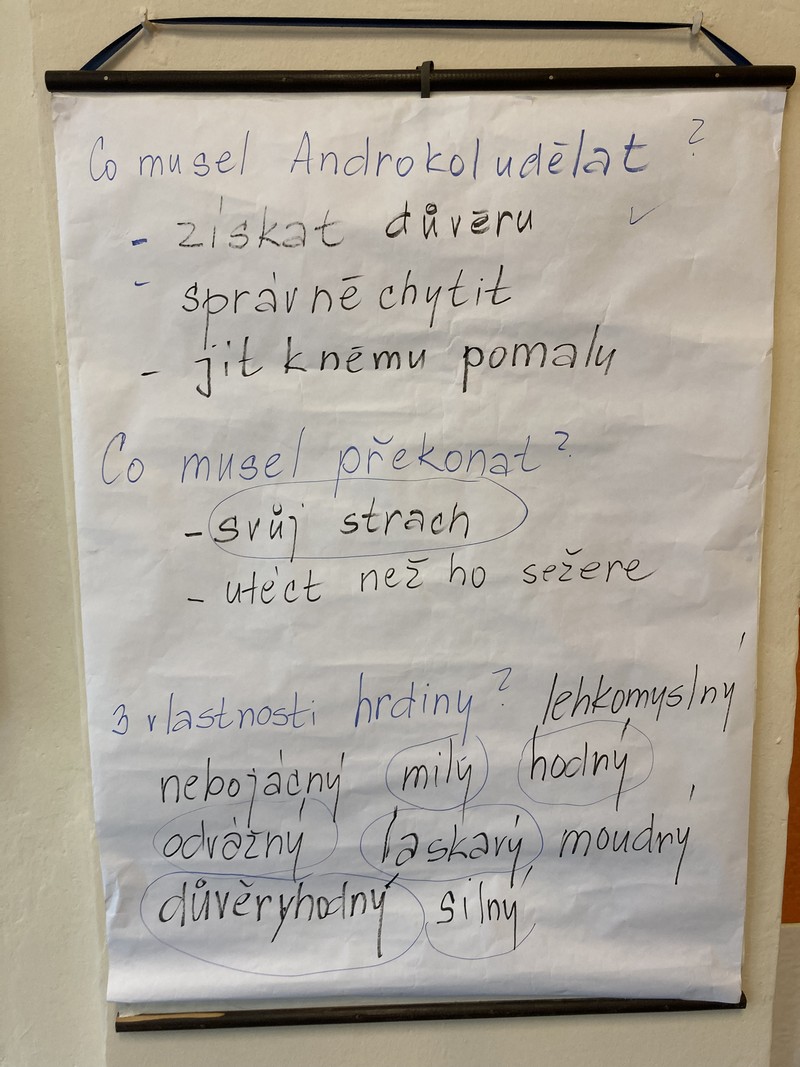 Co musel Androkol udělat ?
- získat důvěru ✓
- správně chytit
- jít k němu pomalu
Co musel překonat ?
- svůj strach
- utéct než ho sežere
3 vlastnosti hrdiny ? lehkomyslný
nebojácný milý hodný
odvážný laskavý moudrý
důvěryhodný silný